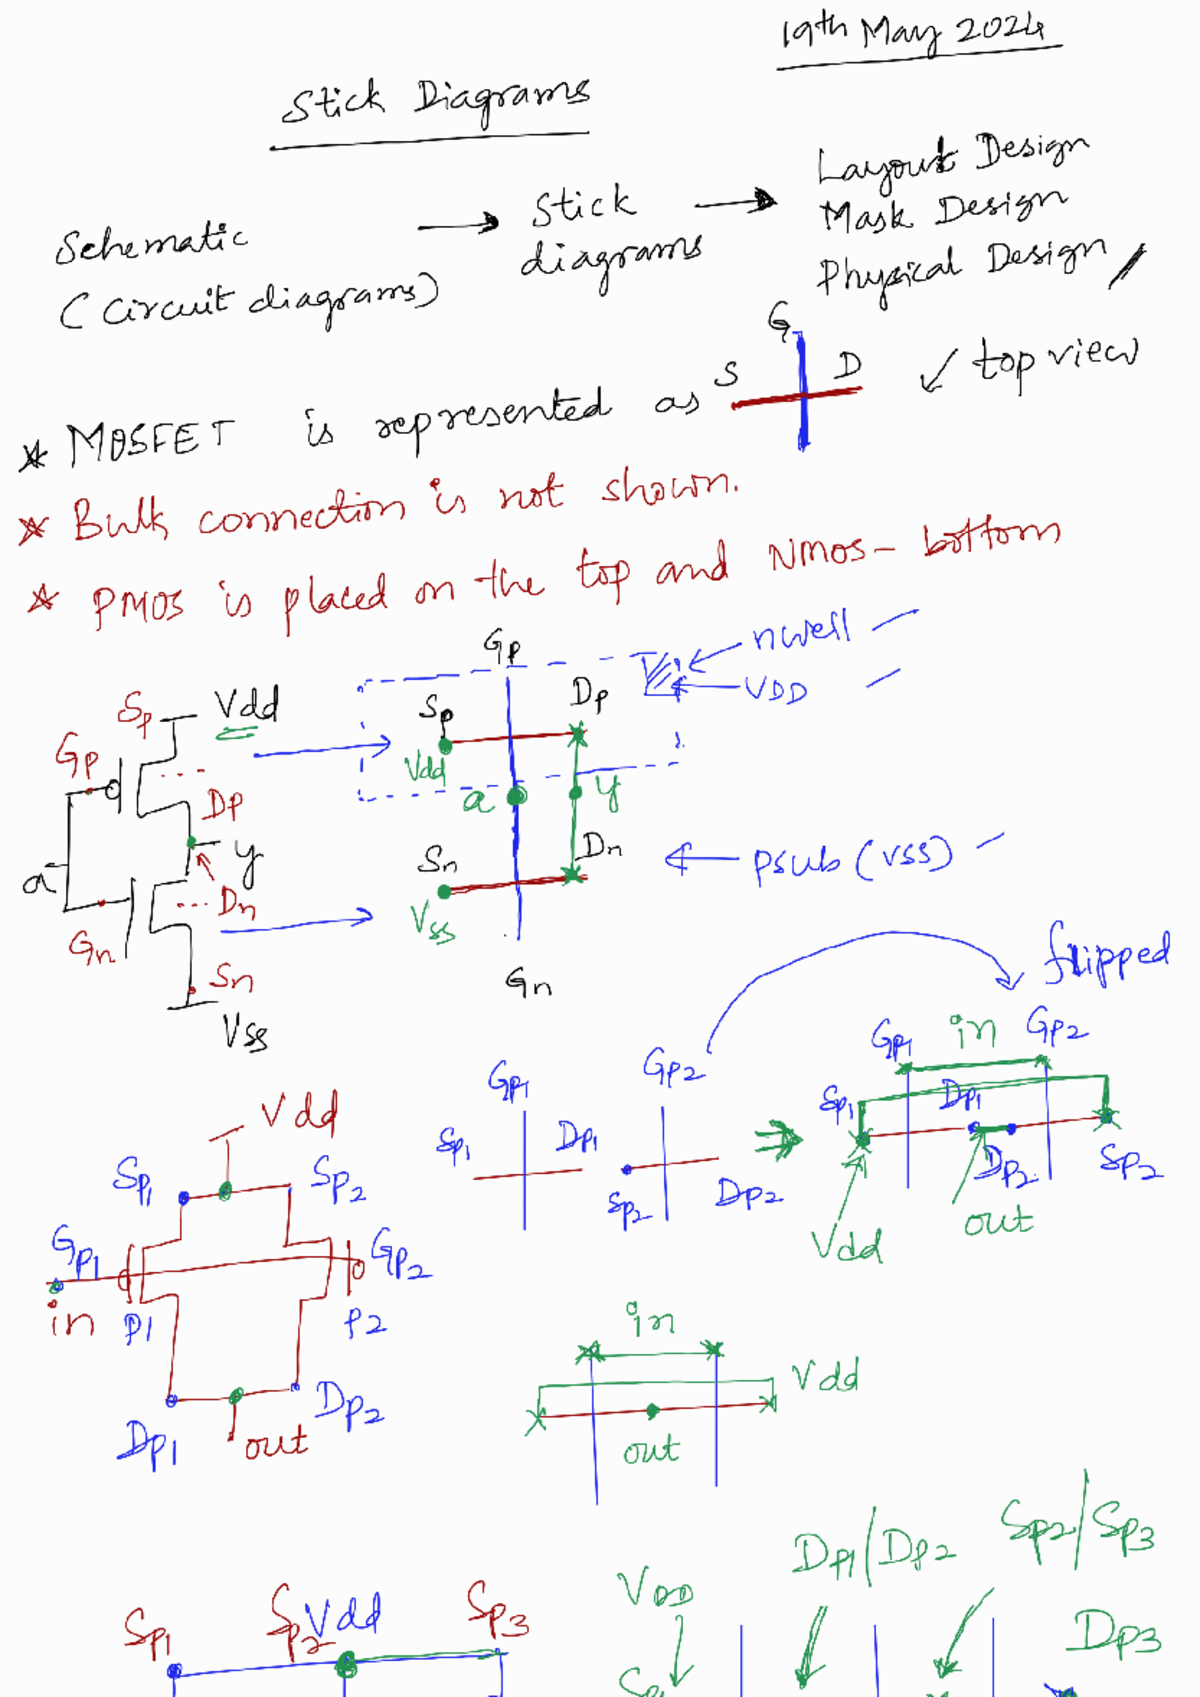 19th May 2024
Stick Diagrams
Schematic
(Circuit diagrams)
→ Stick
diagrams
→ Layout Design
Mask Design
Physical Design
* MOSFET is represented as
G
S D
↙ top view
* Bulk connection is not shown.
* PMOS is placed on the top and NMOS - bottom
Sp Vdd
Gp
Dp
a
y
Dn
Gn
Sn
Vss
Gp
Sp Dp
Vdd
a y
Sn Dn
Vss
Gn
nwell
VDD
psub (VSS)
flipped
Vdd
Sp1 Sp2
Gp1 Gp2
in P1 P2
Dp1 Dp2
out
Gp1 Gp2
Sp1 Dp1
Sp2 Dp2
Gp1 in Gp2
Sp1 Dp1
Dp2 Sp2
Vdd out
in
Vdd
out
Sp1 Sp2 Vdd Sp3
VDD Dp1/Dp2 Sp2/Sp3
Dp3